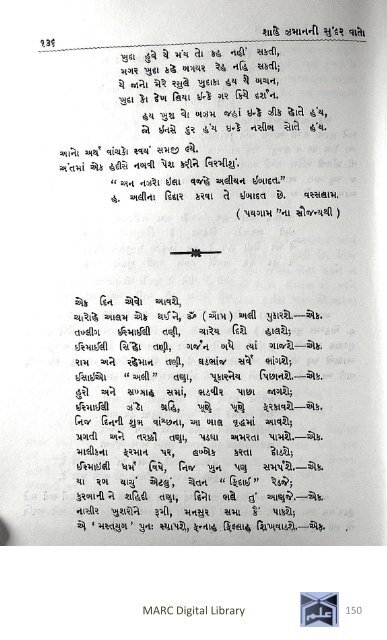 ૧૩૬
શાહે ઝમાનની સુંદર વાતો
ખુદા હુવે યે મંય તો કહ નહીં સકતી,
મગર ખુદા કહે બગયર રેહ નહિ સકતી;
યે જાનો મેરે રસુલે ખુદાકા હય યે બચન,
ખુદા કો દેખ લિયા ઈન્કે ગર કિયે દર્શન.
હય ખુશ વો બઝમ જહાં ઈન્કે ઝીક્ર હોતે હંય,
જો ઈનસે દુર હંય ઈન્કે નસીબ સોતે હંય.
આનો અર્થ વાંચકો સ્વયં સમજી લ્યે.
અંતમાં એક હદીસે નબવી પેશ કરીને વિરમીશું.
“અન નઝરો ઈલા વજહે અલીયન ઈબાદત.”
હ. અલીના દિદાર કરવા તે ઈબાદત છે. વસ્સલામ.
( પયગામ”ના સૌજન્યથી )
એક દિન એવો આવશે,
ચારોહે આલમ એક થઈને, ૐ (ઓમ) અલી પુકારશે.—એક.
તબ્લીગ ઈસ્માઈલી તણી, ચારેય દિશે હાલશે;
ઈસ્માઈલી સિંહો તણી, ગર્જન બધે ત્યાં ગાજશે.—એક.
રામ અને રહેમાન તણી, ઘડભાંજ સર્વે ભાંગશે;
ઈસાઈઓ “અલી” તણા, પુકારનેય પિછાનશે.—એક.
હુરો અને સખ્માહ સમાં, ભડવીર પાછા જાગશે;
ઈસ્માઈલી ઝંડો ગ્રહિ, ખુણે ખુણે ફરકાવશે.—એક.
નિજ દિનની શુભ વાંચ્છના, આ બાલ વૃદ્ધમાં આવશે;
પ્રગતી અને તરક્કી તણા, પડઘા અમરતા પામશે.—એક.
માલીકના ફરમાન પર, લબ્બેક કરતા દોડશે;
ઈસ્માઈલી ધર્મ વિષે, નિજ ખુન પણ સમર્પશે.—એક.
યા રબ યાચું એટલું, ચેતન “ફિદાઈ” રેડજે;
કુરબાની ને શહિદી તણા, દિનો ભલે તું આણજે.—એક.
નાસીર ખુશરોને રૂમી, મનસુર સમા કૈં પાકશે;
એ ‘મસ્તયુગ’ પુનઃ સ્થાપશે, ફન્નાહ ફિલ્લાહ શિખવાડશે.—એક.
MARC Digital Library
علم
150